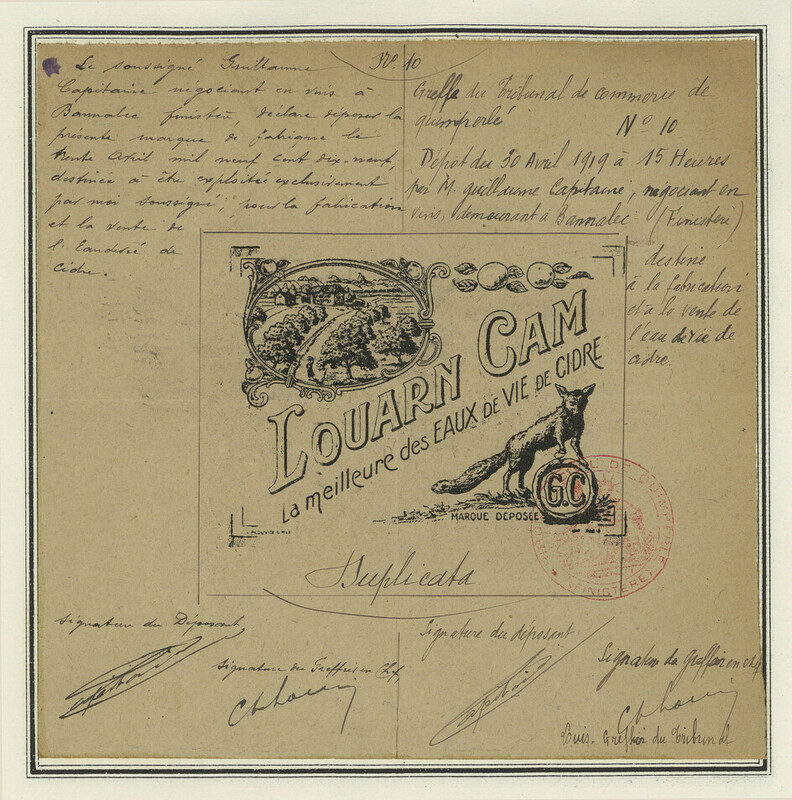 Nº 10
Le soussigné Guillaume
Capitaine négociant en vins à
Bannalec finistère, déclare déposer la
présente marque de fabrique le
trente Avril mil neuf cent dix-neuf,
destinée à être exploitée exclusivement
par moi soussigné, pour la fabrication
et la vente de
l'Eaudevie de
Cidre.
Greffe du Tribunal de commerce de
quimperlé
Nº 10
Dépôt du 30 Avril 1919 à 15 Heures
par M. Guillaume Capitaine, négociant en
vins, demeurant à Bannalec (Finistère)
destiné
à la fabrication
et à la vente de
l'eau de vie de
cidre.
LOUARN CAM
La meilleure des EAUX DE VIE DE CIDRE
G.C
MARQUE DÉPOSÉE
DE QUIMPERLÉ
(FINISTERE)
Duplicata
Signature du Déposant
Signature du Greffier en Chef,
Signature du déposant
Signature du Greffier en chef
Greffier du Tribunal